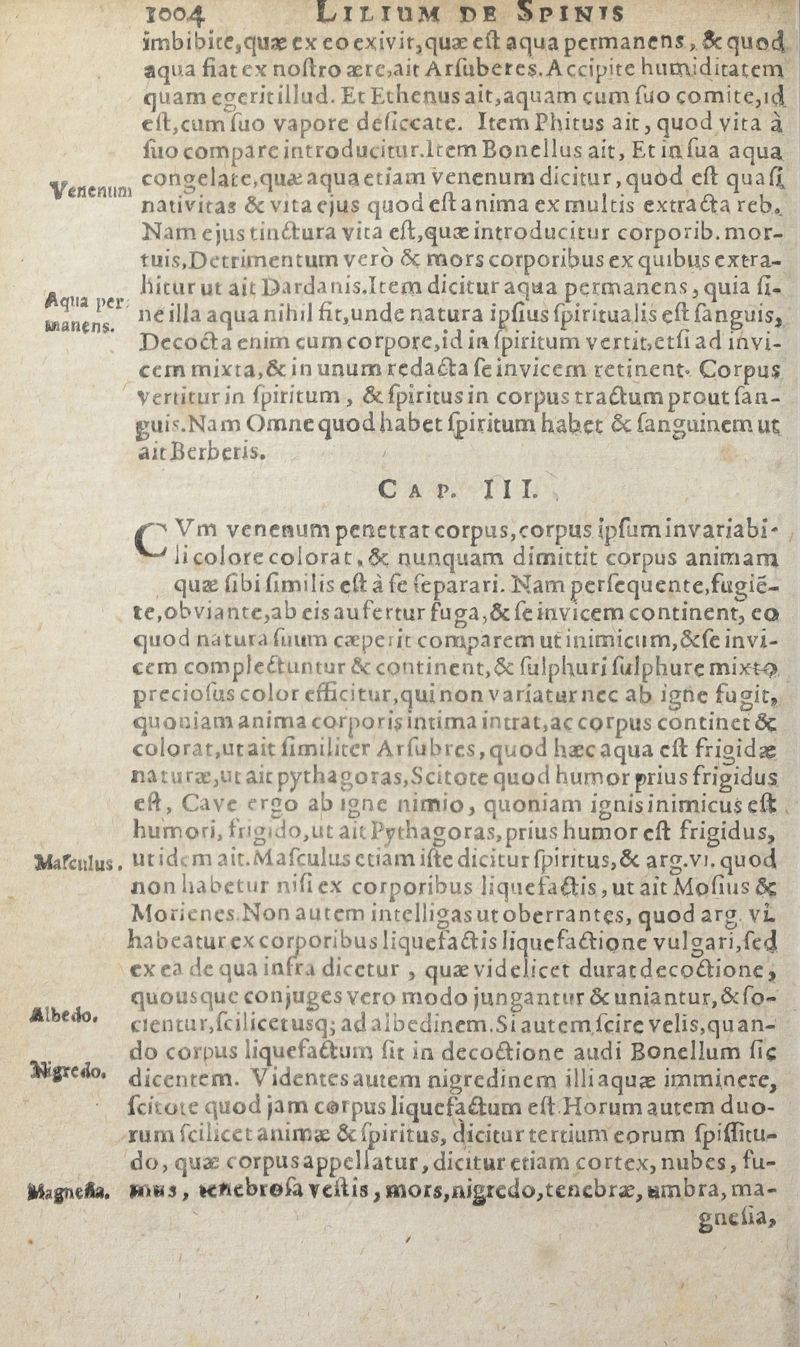 1004 LILIUM DE SPINIS
imbibite,quæ ex eo exivit,quæ eſt aqua permanens, & quod
aqua fiat ex noſtro ære,ait Arſuberes. Accipite humiditatem
quam egerit illud. Et Ethenus ait,aquam cum ſuo comite,id
eſt,cum ſuo vapore deſiccate. Item Phitus ait, quod vita à
ſuo compare introducitur. Item Bonellus ait, Et in ſua aqua
Venenum congelate,quæ aqua etiam venenum dicitur, quòd eſt quaſi
nativitas & vita ejus quod eſt anima ex multis extracta reb.
Nam ejus tinctura vita eſt,quæ introducitur corporib. mor-
tuis,Detrimentum verò & mors corporibus ex quibus extra-
Aqua per- hitur ut ait Dardanis.Item dicitur aqua permanens, quia ſi-
manens. ne illa aqua nihil fit,unde natura ipſius ſpiritualis eſt ſanguis,
Decocta enim cum corpore,id in ſpiritum vertit,etſi ad invi-
cem mixta,& in unum redacta ſe invicem retinent. Corpus
Vertitur in ſpiritum, & ſpiritus in corpus tractum prout ſan-
guis.Nam Omne quod habet ſpiritum habet & ſanguinem ut
ait Berberis.
CAP. III.
CVm venenum penetrat corpus,corpus ipſum invariabi-
li colore colorat, & nunquam dimittit corpus animam
quæ ſibi ſimilis eſt à ſe ſeparari. Nam perſequente,fugiē-
te,obviante,ab eis aufertur fuga,& ſe invicem continent, eo
quod natura ſuum cæperit comparem ut inimicum,& ſe invi-
cem complectuntur & continent,& ſulphuri ſulphure mixto
precioſus color efficitur,qui non variatur nec ab igne fugit,
quoniam anima corporis intima intrat,ac corpus continet &
colorat,ut ait ſimiliter Arſubres, quod hæc aqua eſt frigidæ
naturæ,ut ait pythagoras,Scitote quod humor prius frigidus
eſt, Cave ergo ab igne nimio, quoniam ignis inimicus eſt
humori, frigido,ut ait Pythagoras,prius humor eſt frigidus,
Maſculus. ut idem ait.Maſculus etiam iſte dicitur ſpiritus,& arg.vi. quod
non habetur niſi ex corporibus liquefactis, ut ait Moſius &
Morienes.Non autem intelligas ut oberrantes, quod arg. vi.
habeatur ex corporibus liquefactis liquefactione vulgari,ſed
ex ea de qua infra dicetur, quæ videlicet durat decoctione,
quousque conjuges vero modo jungantur & uniantur,& ſo-
Albedo. cientur,ſcilicet usq; ad albedinem.Si autem ſcire velis,quan-
do corpus liquefactum ſit in decoctione audi Bonellum ſic
Nigredo. dicentem. Videntes autem nigredinem illi aquæ imminere,
ſcitote quod jam corpus liquefactum eſt.Horum autem duo-
rum ſcilicet animæ & ſpiritus, dicitur tertium eorum ſpiſſitu-
do, quæ corpus appellatur, dicitur etiam cortex, nubes, fu-
Magneſia. mus, tenebroſa veſtis, mors,nigredo,tenebræ, umbra, ma-
gneſia,